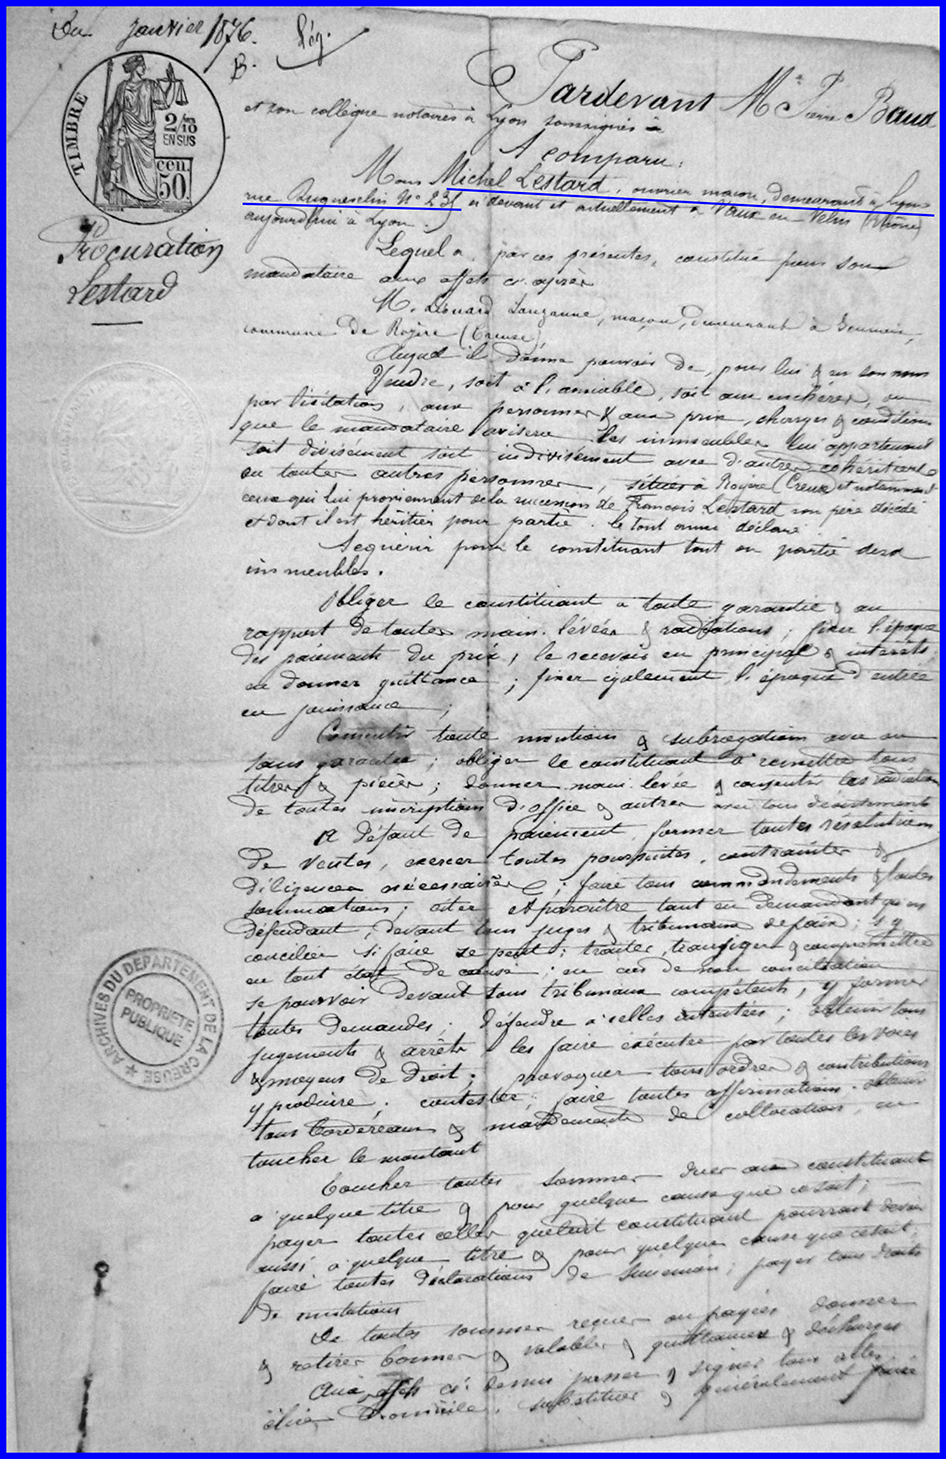 Du janvier 1876.
B.
TIMBRE
2/10
EN SUS
50 cen.
Procuration
Lestard
Pardevant Me Pierre Baud
et son collègue notaires à Lyon soussignés
A comparu:
Mons Michel Lestard, ouvrier maçon, demeurant à Lyon
rue Duguesclin No 231 ci devant et actuellement à Vaux en Velin (Rhône)
aujourd'hui à Lyon.
Lequel a, par ces présentes, constitué pour son
mandataire aux effets ci après
M. Léonard Lauzanne, maçon, demeurant à
commune de Royère (Creuse)
Auquel il donne pouvoir de, pour lui & en son nom
Vendre, soit à l'amiable, soit aux enchères, ou
par licitation, aux personnes & aux prix, charges & conditions
que le mandataire avisera les immeubles lui appartenant
soit divisément soit indivisément avec d'autres cohéritiers
ou toutes autres personnes, situés à Royère (Creuse) et notamment
ceux qui lui proviennent de la succession de François Lestard son père décédé
et dont il est héritier pour partie. le tout ainsi déclaré
Acquérir pour le constituant tout ou partie desd
immeubles.
Obliger le constituant à toute garantie & au
rapport de toutes main-levées & radiations; fixer l'époque
des paiements du prix, le recevoir en principal & intérêts,
en donner quittance; fixer également l'époque d'entrée
en jouissance;
Consentir toute mentions & subrogations avec ou
sans garantie; obliger le constituant à remettre tous
titres & pièces; donner main levée & consentir les radiations
de toutes inscriptions d'office & autres avec tous désistements
A défaut de paiement, former toutes résolutions
de ventes, exercer toutes poursuites, contraintes &
diligences nécessaires; faire tous commandements & toutes
sommations; citer et paroître tant en demandant qu'en
défendant, devant tous juges & tribunaux de paix; s'y
concilier si faire se peut; traiter, transiger & compromettre
en tout état de cause; en cas de non conciliation
se pourvoir devant tous tribunaux compétents, y former
toutes demandes; défendre à celles intentées; obtenir tous
jugements & arrêts les faire exécuter par toutes les voies
& moyens de droit; provoquer tous ordres & contributions
y produire; contester; faire toutes affirmations. obtenir
tous bordereaux & mandements de collocation, en
toucher le montant
Toucher toutes sommes dues au constituant
à quelque titre & pour quelque cause que ce soit;
payer toutes celles que ledit constituant pourrait devoir
aussi à quelque titre & pour quelque cause que ce soit;
faire toutes déclarations de succession; payer tous droits
de mutations
De toutes sommes reçues ou payées donner
& retirer bonnes & valables quittances & décharges
Aux effets ci dessus passer & signer tous actes
élire domicile, substituer & généralement faire
ARCHIVES DU DEPARTEMENT DE LA CREUSE
PROPRIETE
PUBLIQUE